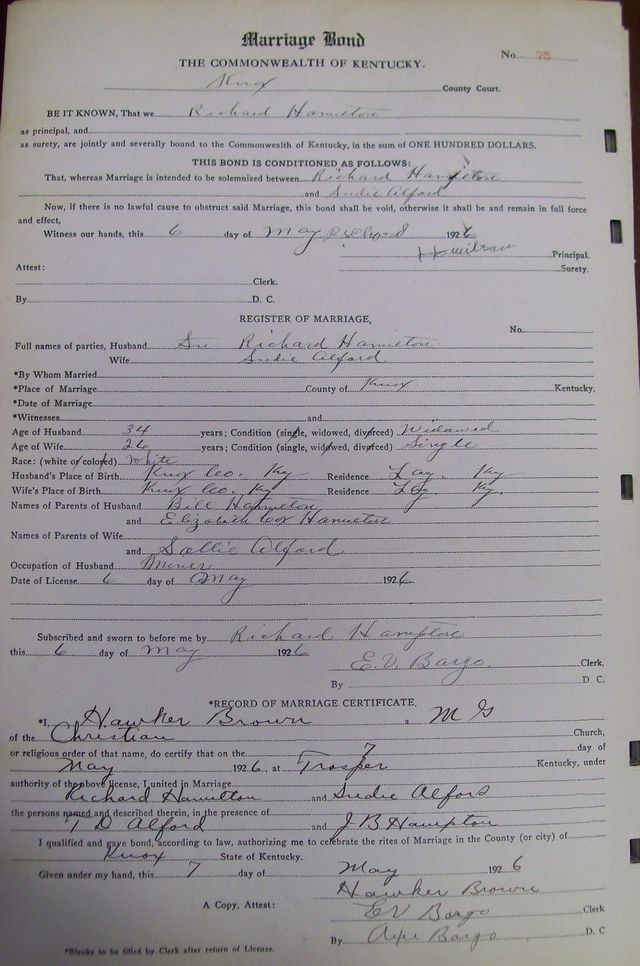 Marriage Bond
No. 75
THE COMMONWEALTH OF KENTUCKY.
Knox County Court.
BE IT KNOWN, That we Richard Hamilton
as principal, and
as surety, are jointly and severally bound to the Commonwealth of Kentucky, in the sum of ONE HUNDRED DOLLARS.
THIS BOND IS CONDITIONED AS FOLLOWS:
That, whereas Marriage is intended to be solemnized between Richard Hampton
and Sudie Alford
Now, if there is no lawful cause to obstruct said Marriage, this bond shall be void, otherwise it shall be and remain in full force
and effect,
Witness our hands, this 6 day of May 1926
Richard Hamilton Principal.
Attest: Surety.
Clerk.
By D. C.
REGISTER OF MARRIAGE,
No.
Full names of parties, Husband Richard Hamilton
Wife Sudie Alford
*By Whom Married
*Place of Marriage County of Knox Kentucky,
*Date of Marriage
*Witnesses and
Age of Husband 34 years; Condition (single, widowed, divorced) Widowed
Age of Wife 26 years; Condition (single, widowed, divorced) Single
Race: (white or colored) White
Husband's Place of Birth Knox Co. Ky Residence Lay. Ky
Wife's Place of Birth Knox Co. Ky Residence Lay. Ky.
Names of Parents of Husband Bill Hamilton
and Elizabeth Cox Hamilton
Names of Parents of Wife
and Sallie Alford
Occupation of Husband Miner
Date of License 6 day of May 1926
Subscribed and sworn to before me by Richard Hampton
this 6 day of May 1926
E.V. Bargo Clerk,
By D. C.
*RECORD OF MARRIAGE CERTIFICATE.
*I, Hawker Brown a M G
of the Christian Church,
or religious order of that name, do certify that on the 7 day of
May 1926, at Trosper Kentucky, under
authority of the above license, I united in Marriage
Richard Hamilton and Sudie Alford
the persons named and described therein, in the presence of
T D Alford and J B Hampton
I qualified and gave bond, according to law, authorizing me to celebrate the rites of Marriage in the County (or city) of
Knox State of Kentucky.
Given under my hand, this 7 day of May 1926
Hawker Brown
A Copy, Attest: EV Bargo Clerk
By Bargo D. C
*Blanks to be filled by Clerk after return of License.